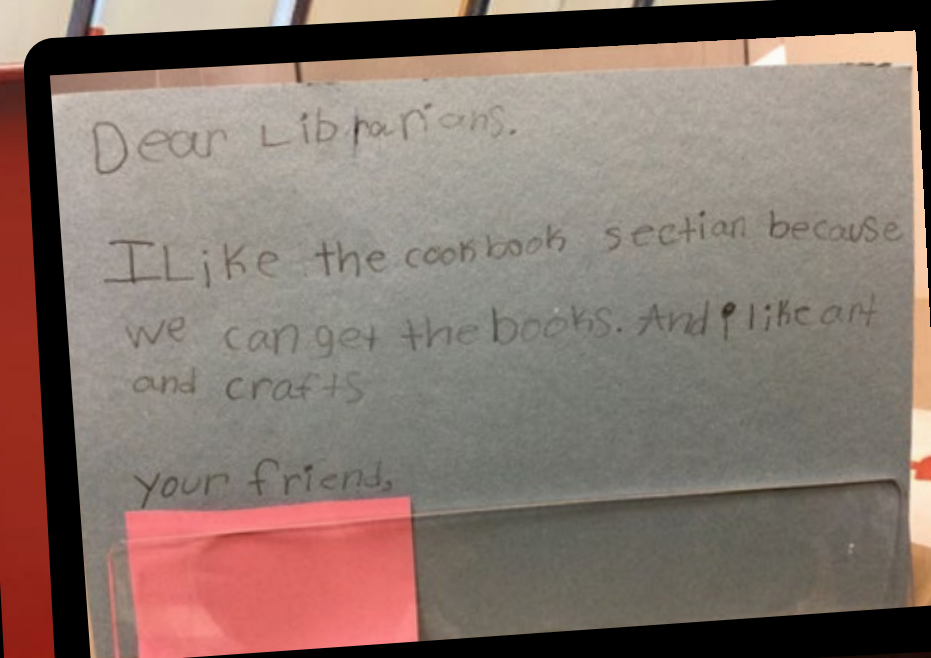 Dear Librarians.
I Like the cookbook section because
we can get the books. And I like art
and crafts
your friend,